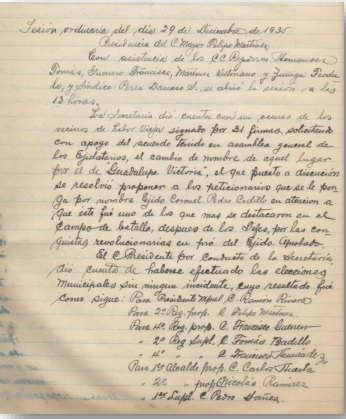 Sesión ordinaria del día 29 de Diciembre de 1935
Presidencia del C. Mayor Felipe Martínez.
Con asistencia de los C.C. Regidores Hernández
Tomás, Guerrero Francisco, Martínez Victoriano y Zuñiga Teodu-
lo, y Síndico Pérez Damaso S. se abrió la sesión a las
13 horas.
La Secretaría dió cuenta con un ocurso de los
vecinos de Labor Vieja signado por 31 firmas, solicitando
con apoyo del acuerdo tenido en asamblea general de
los Ejidatarios, el cambio de nombre de aquel lugar
por el de "Guadalupe Victoria", el que puesto a discución
se resolvió proponer a los peticionarios que se le pon-
ga por nombre Ejido Coronel Pedro Cedillo en atención a
que este fué uno de los que mas se destacaron en el
campo de batalla, despues de los Jefes, por las con-
quistas revolucionarias en pró del Ejido. Aprobado.
El C. Presidente por conducto de la Secretaría
dió cuenta de haberse efectuado las elecciones
Municipales sin ningun incidente, cuyo resultado fué
como sigue: Para Presidente Mpal. C. Ramón Rivera
Para 2º Reg. prop. C. Felipe Martínez
Para 4º Reg. prop. A. Francisco Guerrero
" 2º Reg Supl. C. Tomás Badillo
" 4º " " A. Francisco Hernández
Para 1er Alcalde prop. C. Carlos Huerta
" 2º " prop. Nicolás Ramírez
" 1er Supl. C. Pedro